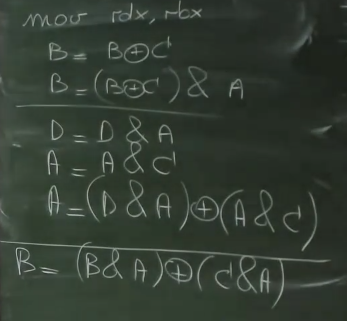 mov rdx, rbx
B = B⊕C
B = (B⊕C) & A
D = D & A
A = A & C
A = (D & A) ⊕ (A & C)
B = (B & A) ⊕ (C & A)